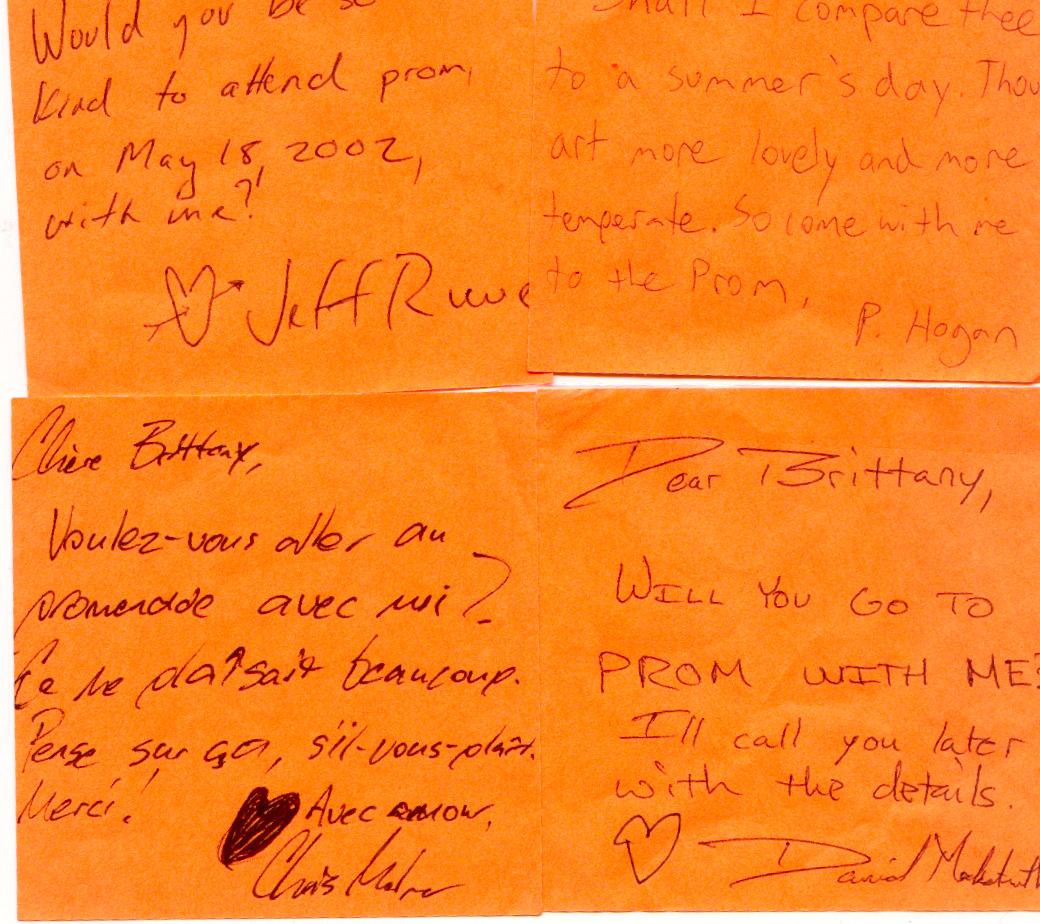 Would you be so
kind to attend prom,
on May 18, 2002,
with me?!
Jeff
Shall I compare thee
to a summer's day. Thou
art more lovely and more
temperate. So come with me
to the Prom,
P. Hogan
Chère Brittany,
Voulez-vous aller au
promenade avec moi?
Ça me plaîsait beaucoup.
Pense sur ça, s'il-vous-plaît.
Merci!
Avec amour,
Chris
Dear Brittany,
WILL YOU GO TO
PROM WITH ME?
I'll call you later
with the details.
David